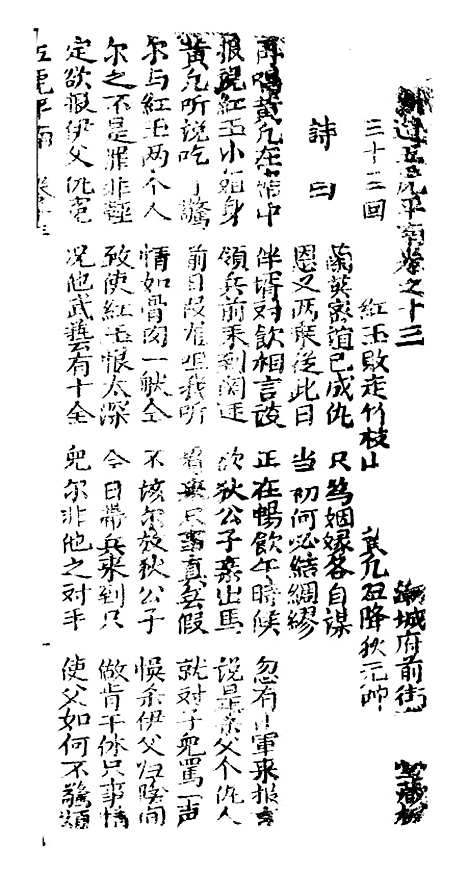 新造五虎平南卷之十三 潮城府前街 堂藏板
三十三回 紅玉敗走竹枝山 降狄元帥
詩曰 蘭英道已成仇 只為姻縁各自謀
恩义两 從此日 當初何必結綢繆
再唱黄九在帘中 伴壻对飲相言談 正在暢飲午時候 忽有山軍来报言
报說紅玉小姐身 領兵前来到関廷 欲狄公子来出馬 說是杀父个仇人
黄九听說吃了驚 前日 我听 看来只事真共假 就对子兒罵一声
尔与紅玉两个人 情如骨肉一般仝 不該尔放狄公子 悞杀伊父归陰间
尔之不是罪非輕 致使紅玉恨太深 今日帶兵来到只 做肯干休只事情
定欲报伊父仇寃 况他武藝有十全 兒尔非他之对手 使父如何不驚煩
五虎平南 卷十三